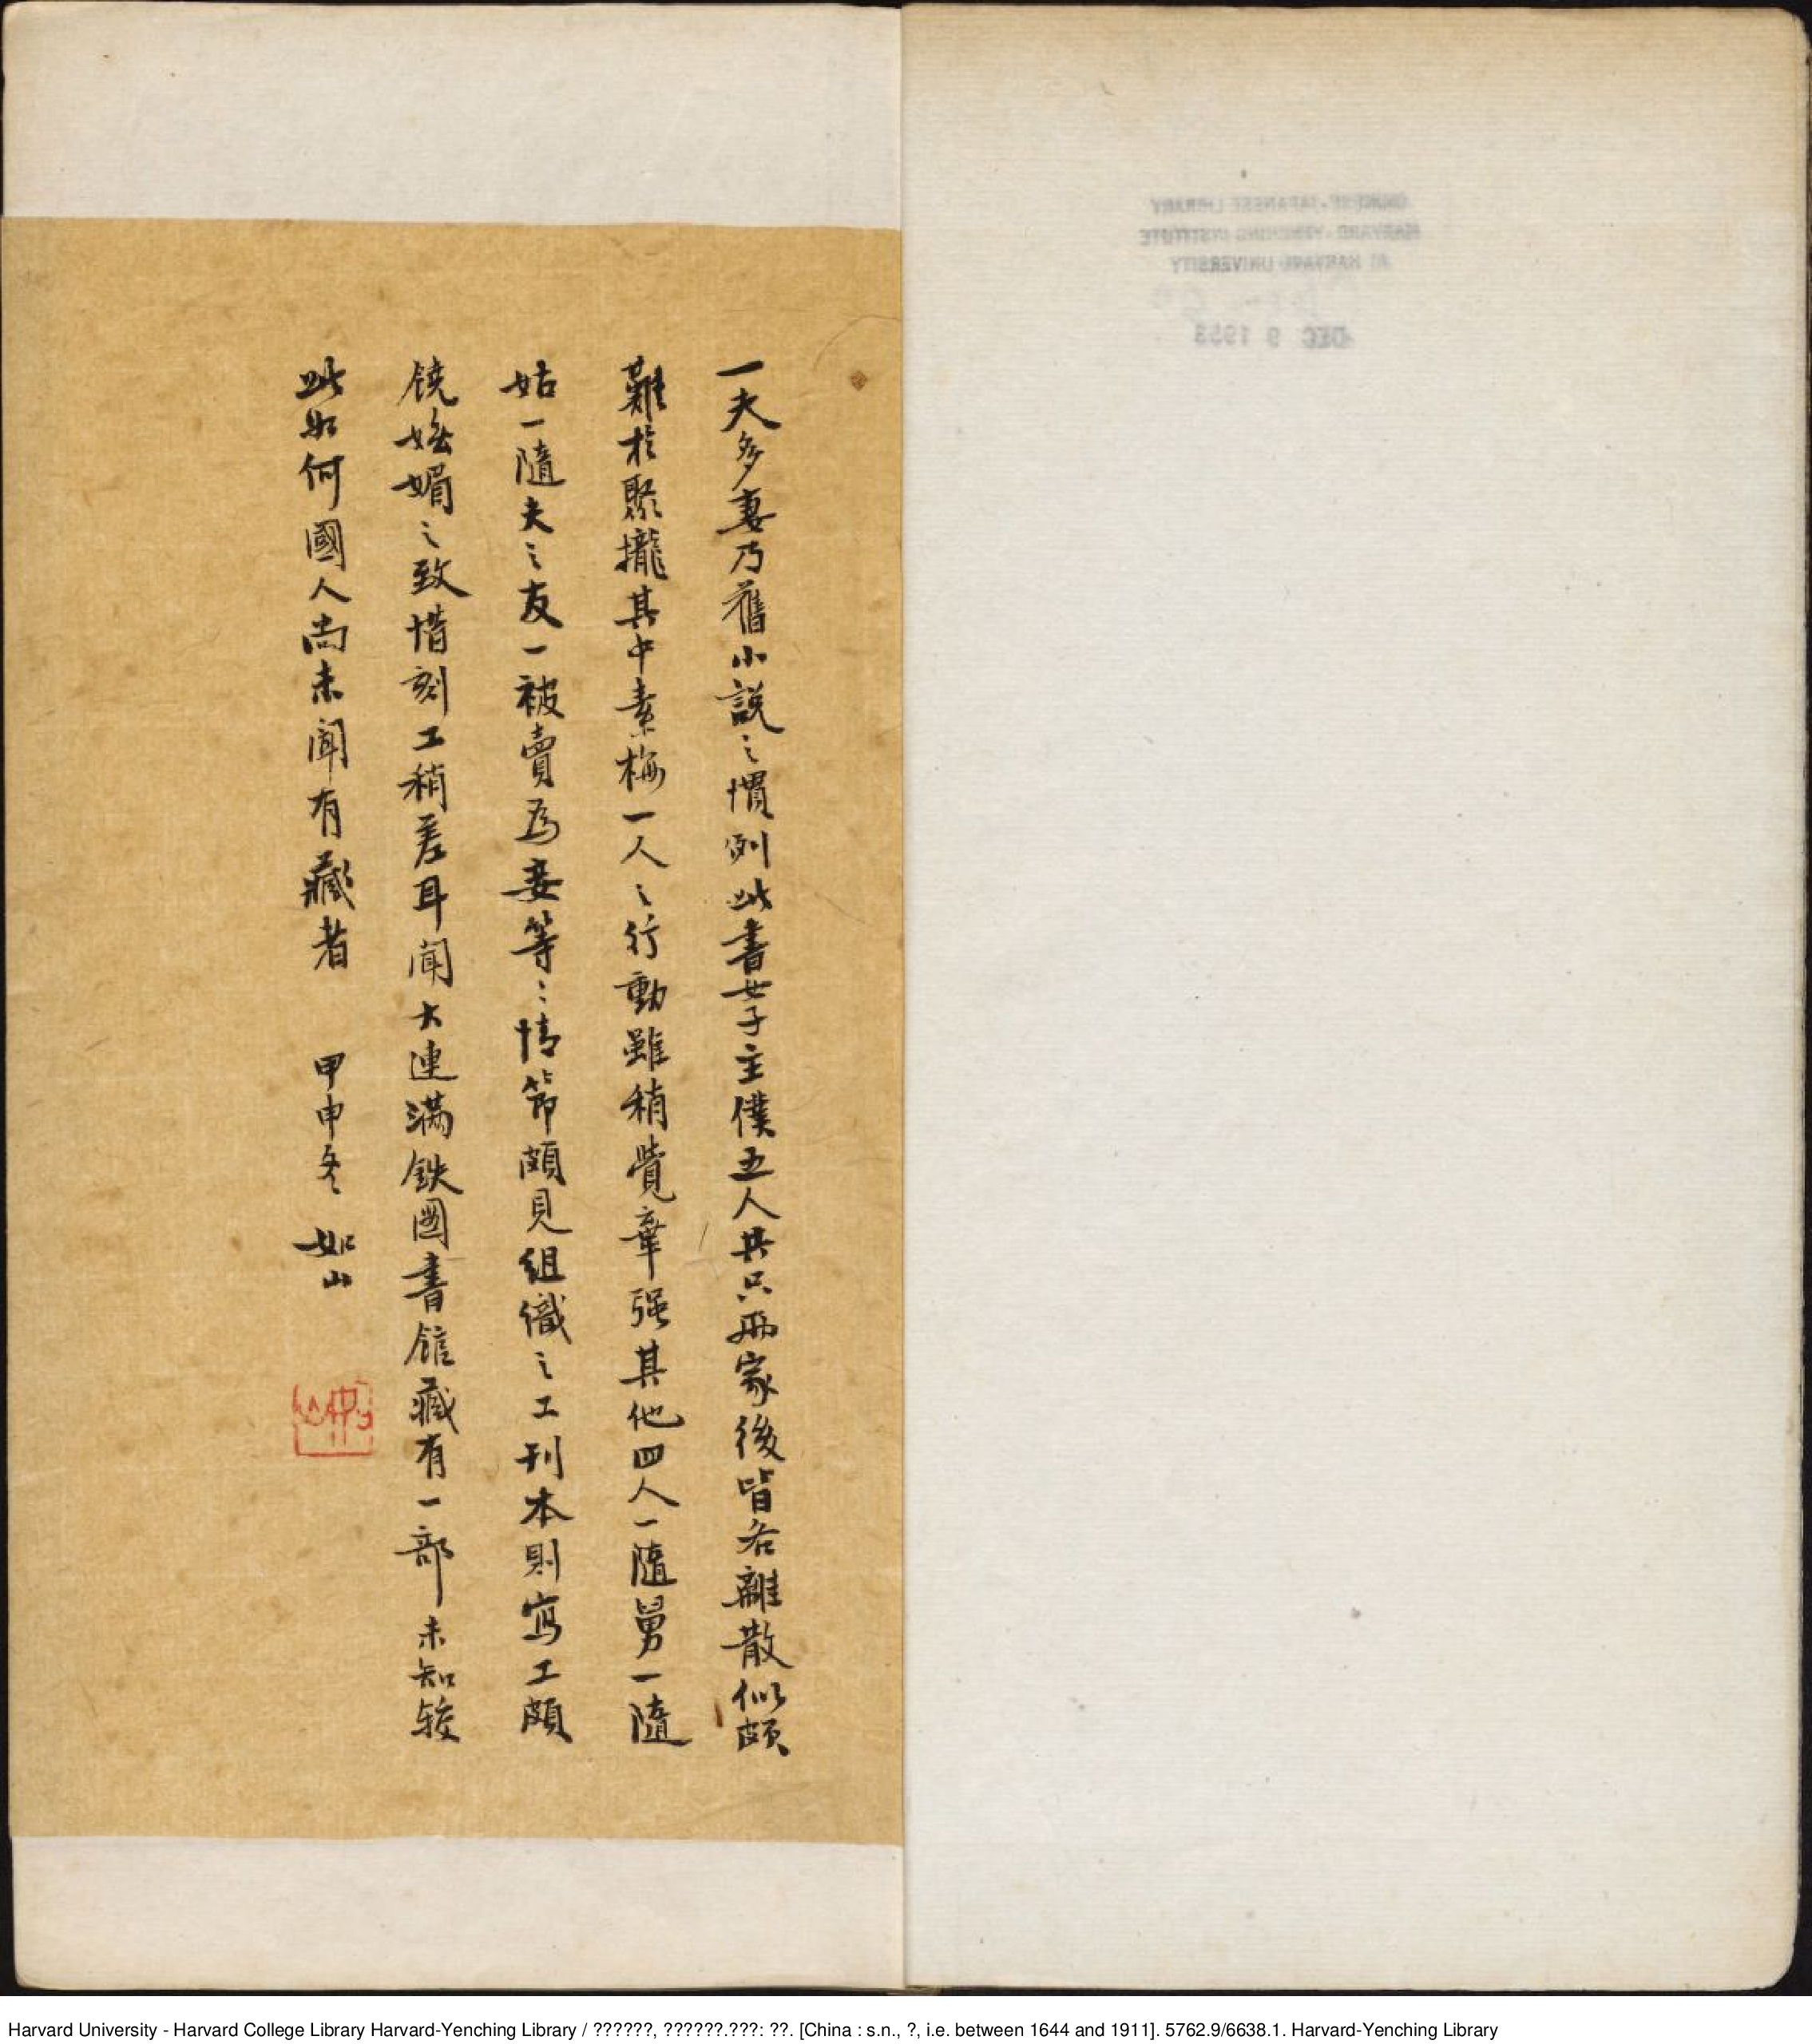 一夫多妻乃舊小說之慣例此書女子主僕五人共只兩家後皆各離散似頗
難於聚攏其中素梅一人之行動雖稍覺牽强其他四人一隨舅一隨
姑一隨夫之友一被賣為妾等々情節頗見組織之工刊本則寫工頗
饒嫵媚之致惜刻工稍差耳聞大連满鉄圖書館藏有一部未知較
此如何國人尚未聞有藏者 甲申冬 如山
CHINESE-JAPANESE LIBRARY
HARVARD-YENCHING INSTITUTE
AT HARVARD UNIVERSITY
DEC 9 1953
Harvard University - Harvard College Library Harvard-Yenching Library / ??????, ??????.???: ??. [China : s.n., ?, i.e. between 1644 and 1911]. 5762.9/6638.1. Harvard-Yenching Library